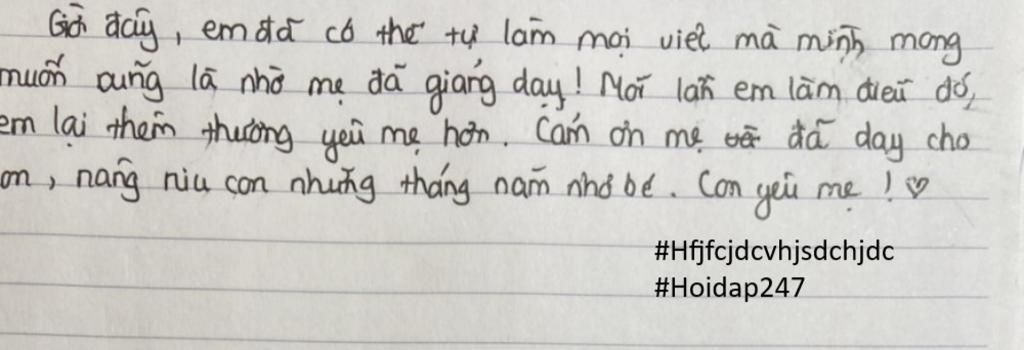 Giờ đây, em đã có thể tự làm mọi việt mà mình mong
muốn cũng là nhờ mẹ đã giảng dạy! Mỗi lần em làm điều đó,
em lại thêm thương yêu mẹ hơn. Cảm ơn mẹ đã dạy cho
on, nâng niu con những tháng năm nhỏ bé. Con yêu mẹ! ♡
#Hfjfcjdcvhjsdchjdc
#Hoidap247